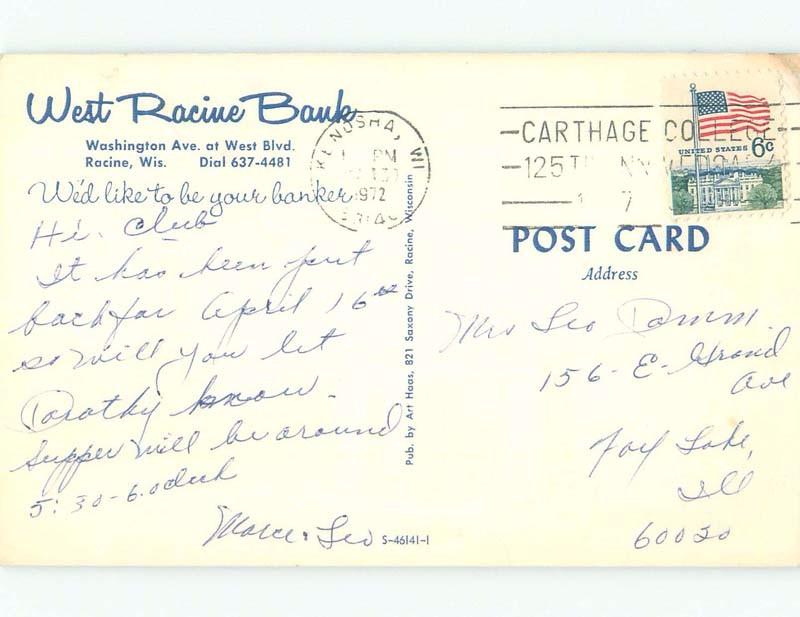 West Racine Bank
Washington Ave. at West Blvd.
Racine, Wis. Dial 637-4481
We'd like to be your banker
Hi. Club
It has been put
back for April 16th
so will you let
Dorothy know.
Supper will be around
5:30-6.oclock
Leo
S-46141-1
Pub. by Art Haas, 821 Saxony Drive, Racine, Wisconsin
KENOSHA, WI
PM
1972
CARTHAGE COLLEGE
125TH
UNITED STATES 6c
POST CARD
Address
Mrs Leo Damm.
156-E-Grand
Ave
Fox Lake,
Ill
60020